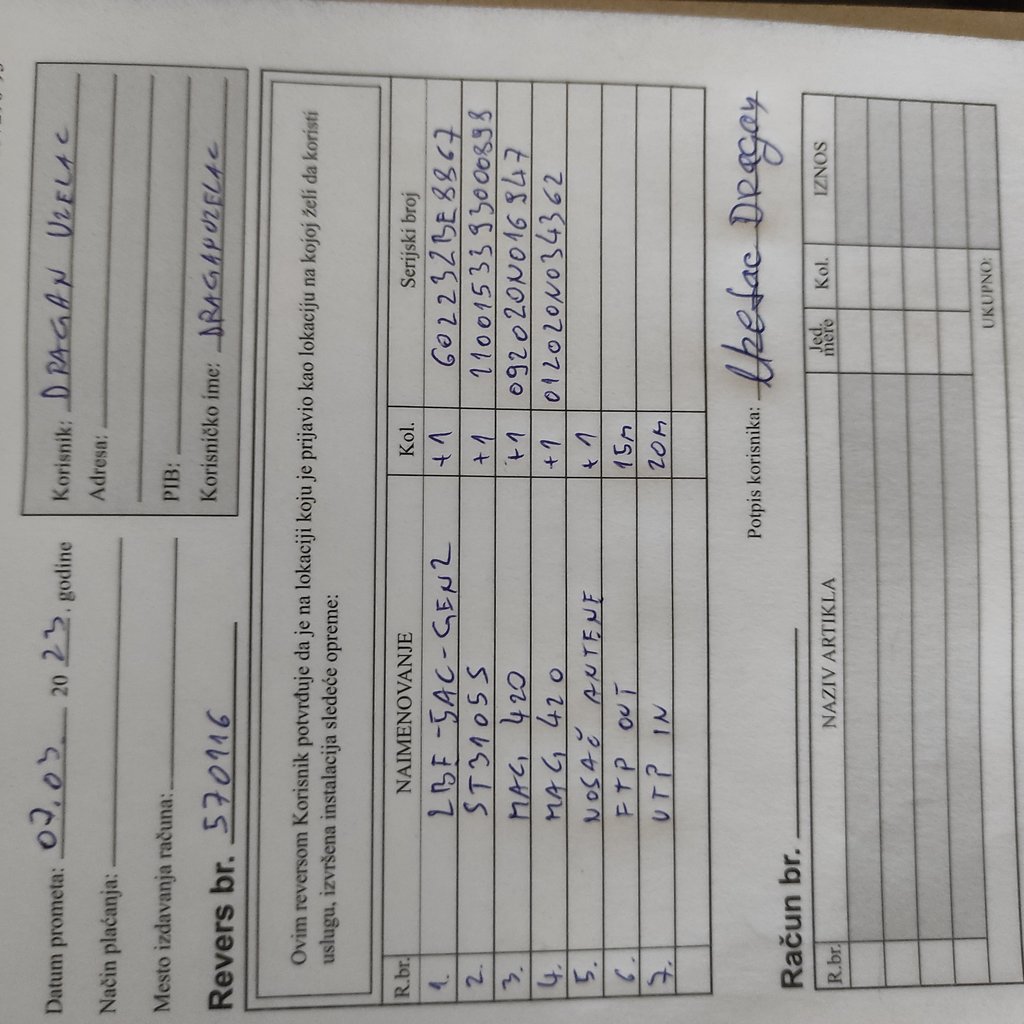 Datum prometa: 07.03. 20 23. godine
Način plaćanja:
Mesto izdavanja računa:
Revers br. 570116
Korisnik: DRAGAN UZELAC
Adresa:
PIB:
Korisničko ime: DRAGANUZELAC
Ovim reversom Korisnik potvrđuje da je na lokaciji koju je prijavio kao lokaciju na kojoj želi da koristi
uslugu, izvršena instalacija sledeće opreme:
R.br. NAIMENOVANJE Kol. Serijski broj
1. LBE-5AC-GEN2 +1 602232BE8867
2. ST3105S +1 1100153393000898
3. MAG 420 +1 092020N016947
4. MAG 420 +1 012020N034362
5. NOSAČ ANTENE +1
6. FTP OUT 15m
7. UTP IN 20m
Potpis korisnika: Uzelac Dragan
Račun br.
R.br. NAZIV ARTIKLA Jed. mere Kol. IZNOS
UKUPNO: